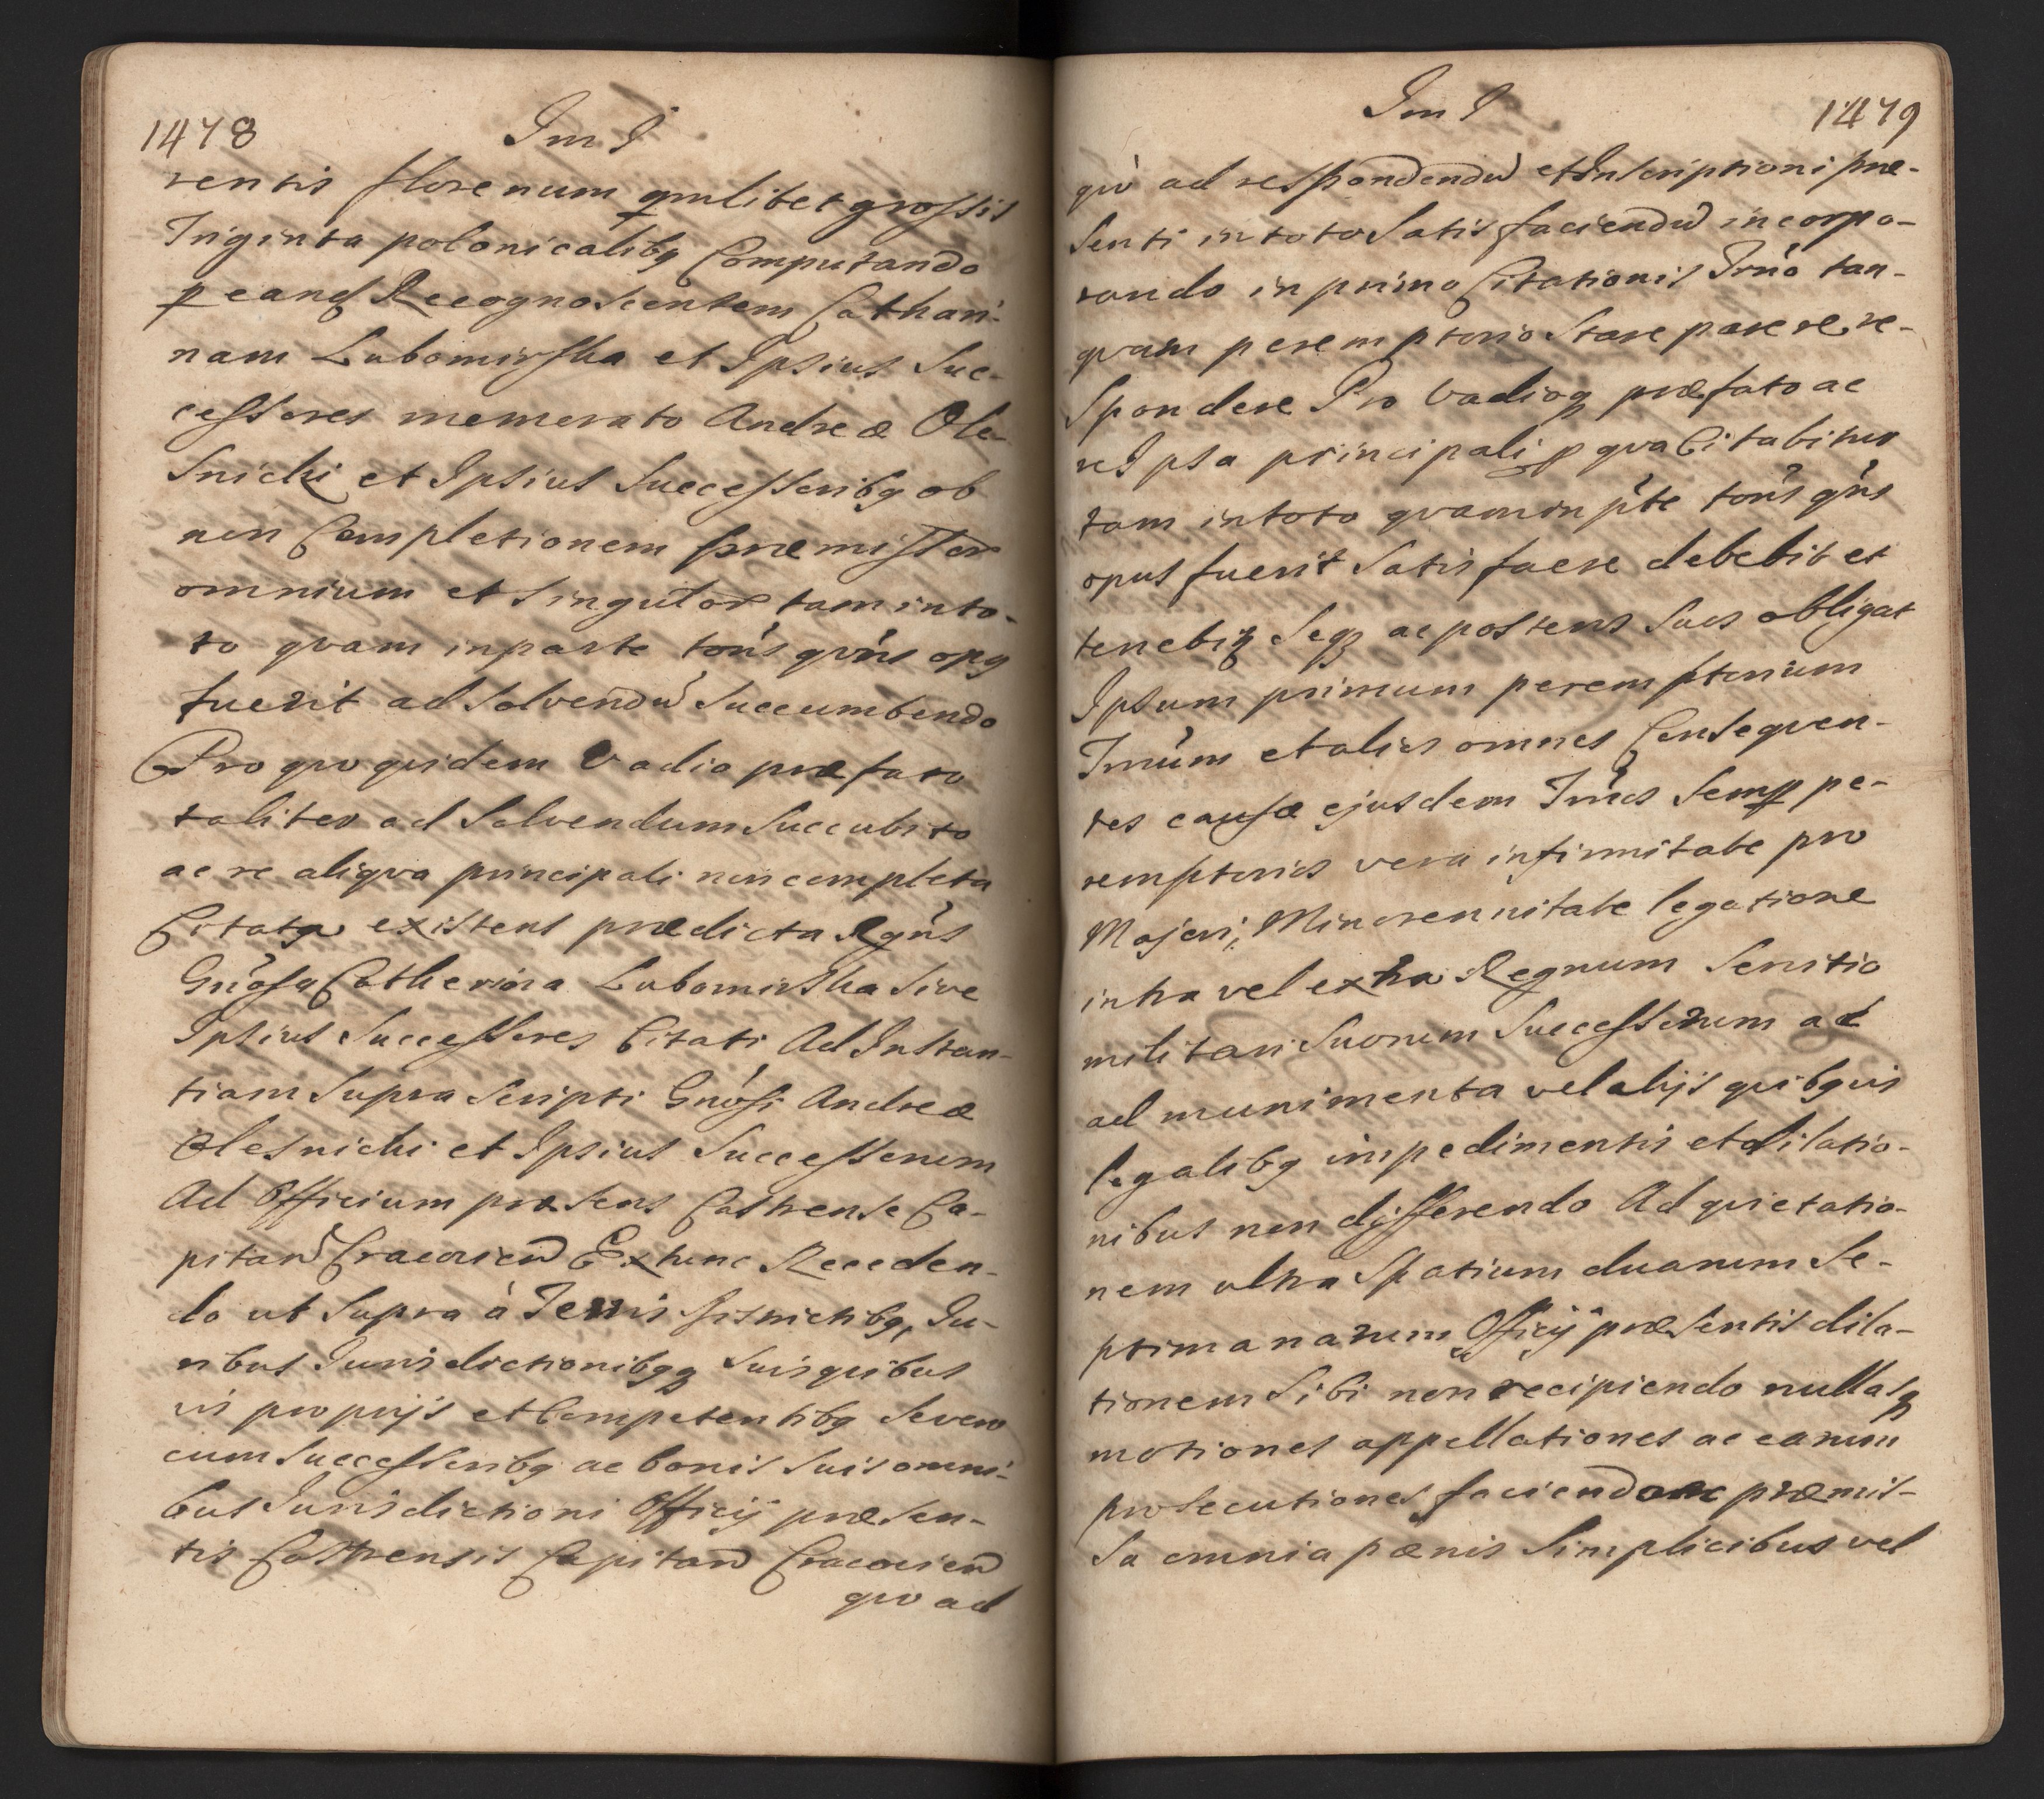 1478
Im I
rentis florenum qmlibet grossis
Triginta polonicalibq Computando
p eand Recognoscentem Cathari-
nam Lubomirska et Ipsius Suc-
cessores memorato Andreæ Ole-
snicki et Ipsius Successoribq ob
non Completionem præmissor
omnium et singulor tam in to-
to qvam in parte toũs qvũs opq
fuerit ad solvendũ succumbendo
Pro qvo qvidem Vadio præfato
taliter ad Solvendum Succubito
ac re aliqva principali non completa
Citata existens prædicta Rgńs
Gńosa Catherina Lubomirska sive
Ipsius Successores Citati Ad Instan-
tiam Supra Scripti Gńosi Andreæ
Olesnicki et Ipsius Successorum
Ad Officium præsens Castrense Ca-
pitan Cracovien Ex tunc Receden-
do ut Supra à Terris Districtibq, Iu-
ribus Iurisdictionibqq suis qvibus
vis proprijs et Competentibq Severo
cum Successoribq ac bonis suis omni-
bus Iurisdictioni Officij præsen-
tis Castrensis Capitan Cracovien
qvo ad
Im I
1479
qvò ad respondendũ et Inscriptioni præ-
senti in toto Satisfaciendũ incorpo-
rando in primo Citationis Tr̃no tan-
qvam peremptorio Stare parere re-
spondere Pro Vadioq præfato ac
re Ipsa principali p qva Citabitur
tam in toto qvam in p̃te toũs qũs
opus fuerit Satisfacere debebit et
tenebit Seqz ac posteros suos obligat
Ipsum primum peremptorium
Tr̃num et alios omnes Conseqven-
tes causæ ejusdem Tr̃nos Semp pe-
remptorios vera infirmitate pro
Majori, Minorennitate legatione
intra vel extra Regnum Servitio
militari Suorum Successorum ad
ad munimenta vel alijs qvibqvis
legalibq impedimentis et dilatio-
nibus non differendo Ad qvietatio-
nem ultra Spatium duarum Se-
ptimanarum Officij præsentis dila-
tionem Sibi non recipiendo nullasq
motiones appellationes ac earum
prosecutiones faciendo præmis-
sa omnia pænis Simplicibus vel